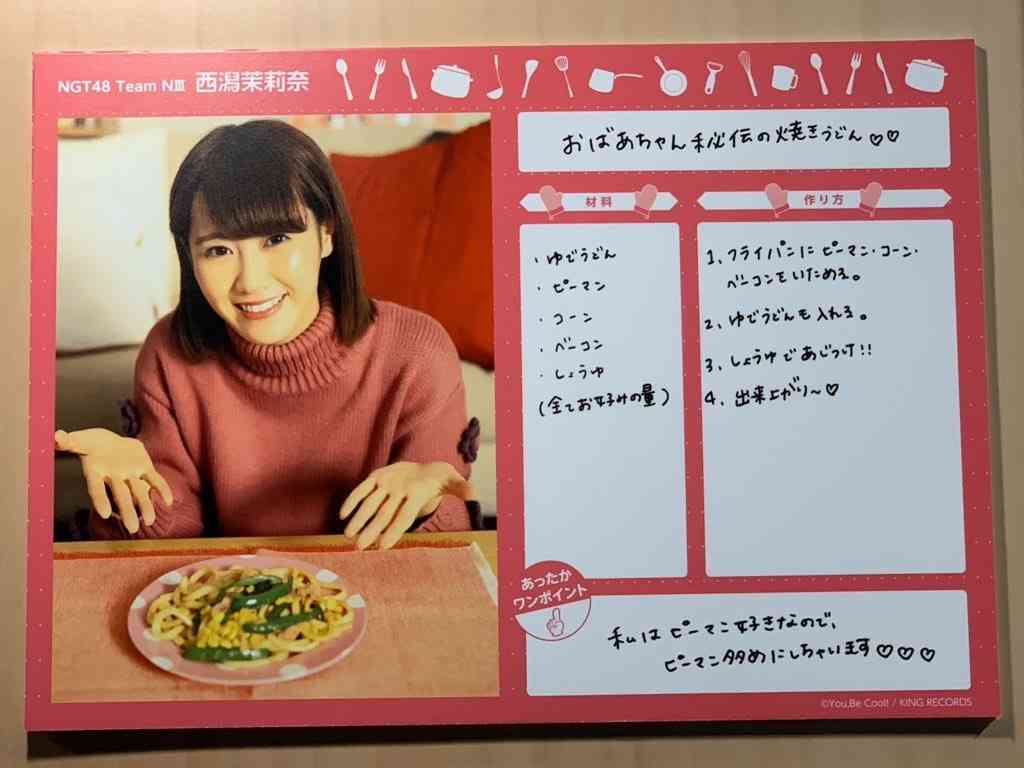 NGT48 Team NⅢ 西潟茉莉奈
おばあちゃん秘伝の焼きうどん♡♡
材料
・ゆでうどん
・ピーマン
・コーン
・ベーコン
・しょうゆ
(全てお好みの量)
作り方
1. フライパンにピーマン・コーン・
ベーコンをいためる。
2. ゆでうどんも入れる。
3. しょうゆであじつけ!!
4. 出来上がり〜♡
あったか
ワンポイント
私はピーマン好きなので、
ピーマン多めにしちゃいます♡♡♡
©You,Be Cool! / KING RECORDS